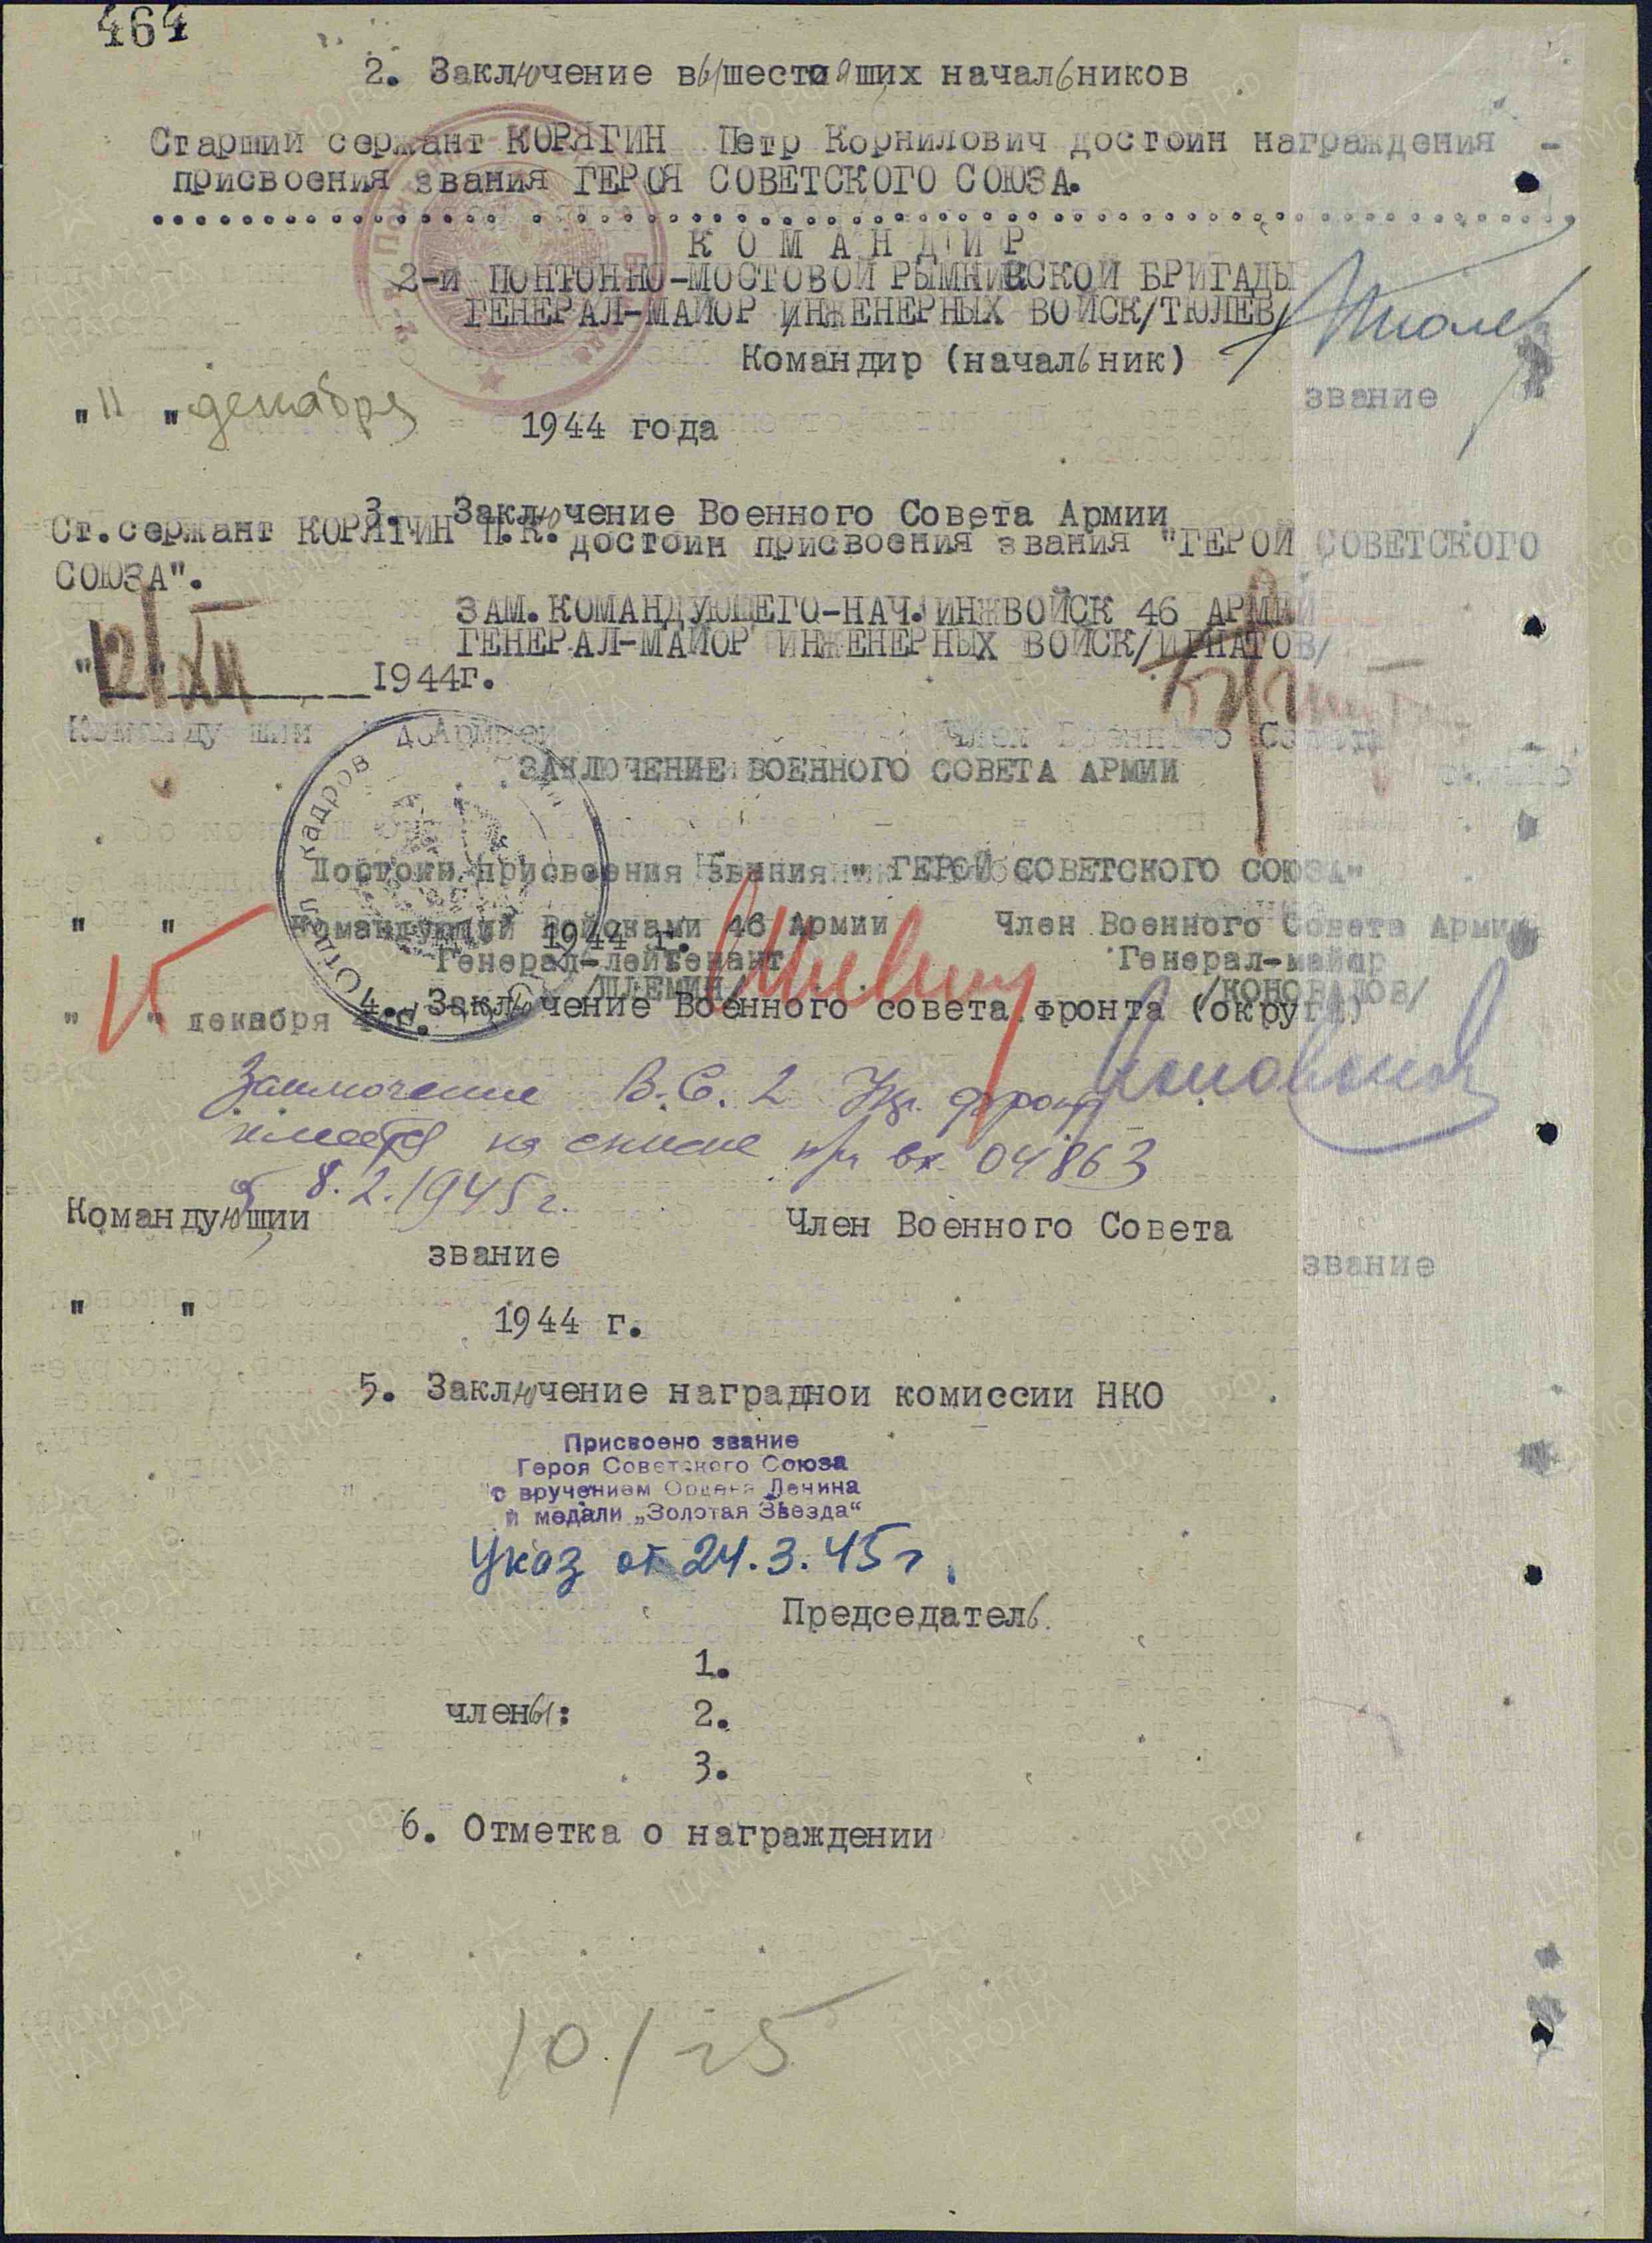 464
2. Заключение вышестоящих начальников
Старший сержант КОРЯГИН Петр Корнилович достоин награждения -
присвоения звания ГЕРОЯ СОВЕТСКОГО СОЮЗА.
К О М А Н Д И Р
2-й ПОНТОННО-МОСТОВОЙ РЫМНИКСКОЙ БРИГАДЫ
ГЕНЕРАЛ-МАЙОР ИНЖЕНЕРНЫХ ВОЙСК/ТЮЛЕВ/
Командир (начальник)
звание
"11" декабря 1944 года
3. Заключение Военного Совета Армии
Ст.сержант КОРЯГИН П.К. достоин присвоения звания "ГЕРОЙ СОВЕТСКОГО
СОЮЗА".
ЗАМ.КОМАНДУЮЩЕГО-НАЧ.ИНЖВОЙСК 46 АРМИИ
ГЕНЕРАЛ-МАЙОР ИНЖЕНЕРНЫХ ВОЙСК/ИГНАТОВ/
"12" XII 1944г.
Командующий Армией Член Военного Совета
ЗАКЛЮЧЕНИЕ ВОЕННОГО СОВЕТА АРМИИ
Отдел кадров
Достоин присвоения звания " ГЕРОЙ СОВЕТСКОГО СОЮЗА"
Командующий Войсками 46 Армии Член Военного Совета Армии
" " 1944 г.
Генерал-лейтенант Генерал-майор
/ШЛЕМИН/ /КОНОВАЛОВ/
4. Заключение Военного совета фронта (округа)
" " декабря
Заключение В.С. 2 Укр. фронта
имеется на списке при вх. 04863
от 8.2.1945 г.
Командующий Член Военного Совета
звание звание
" " 1944 г.
5. Заключение наградной комиссии НКО
Присвоено звание
Героя Советского Союза
с вручением Ордена Ленина
и медали „Золотая Звезда“
Указ от 24.3.45 г.
Председатель
1.
члены: 2.
3.
6. Отметка о награждении
10/25